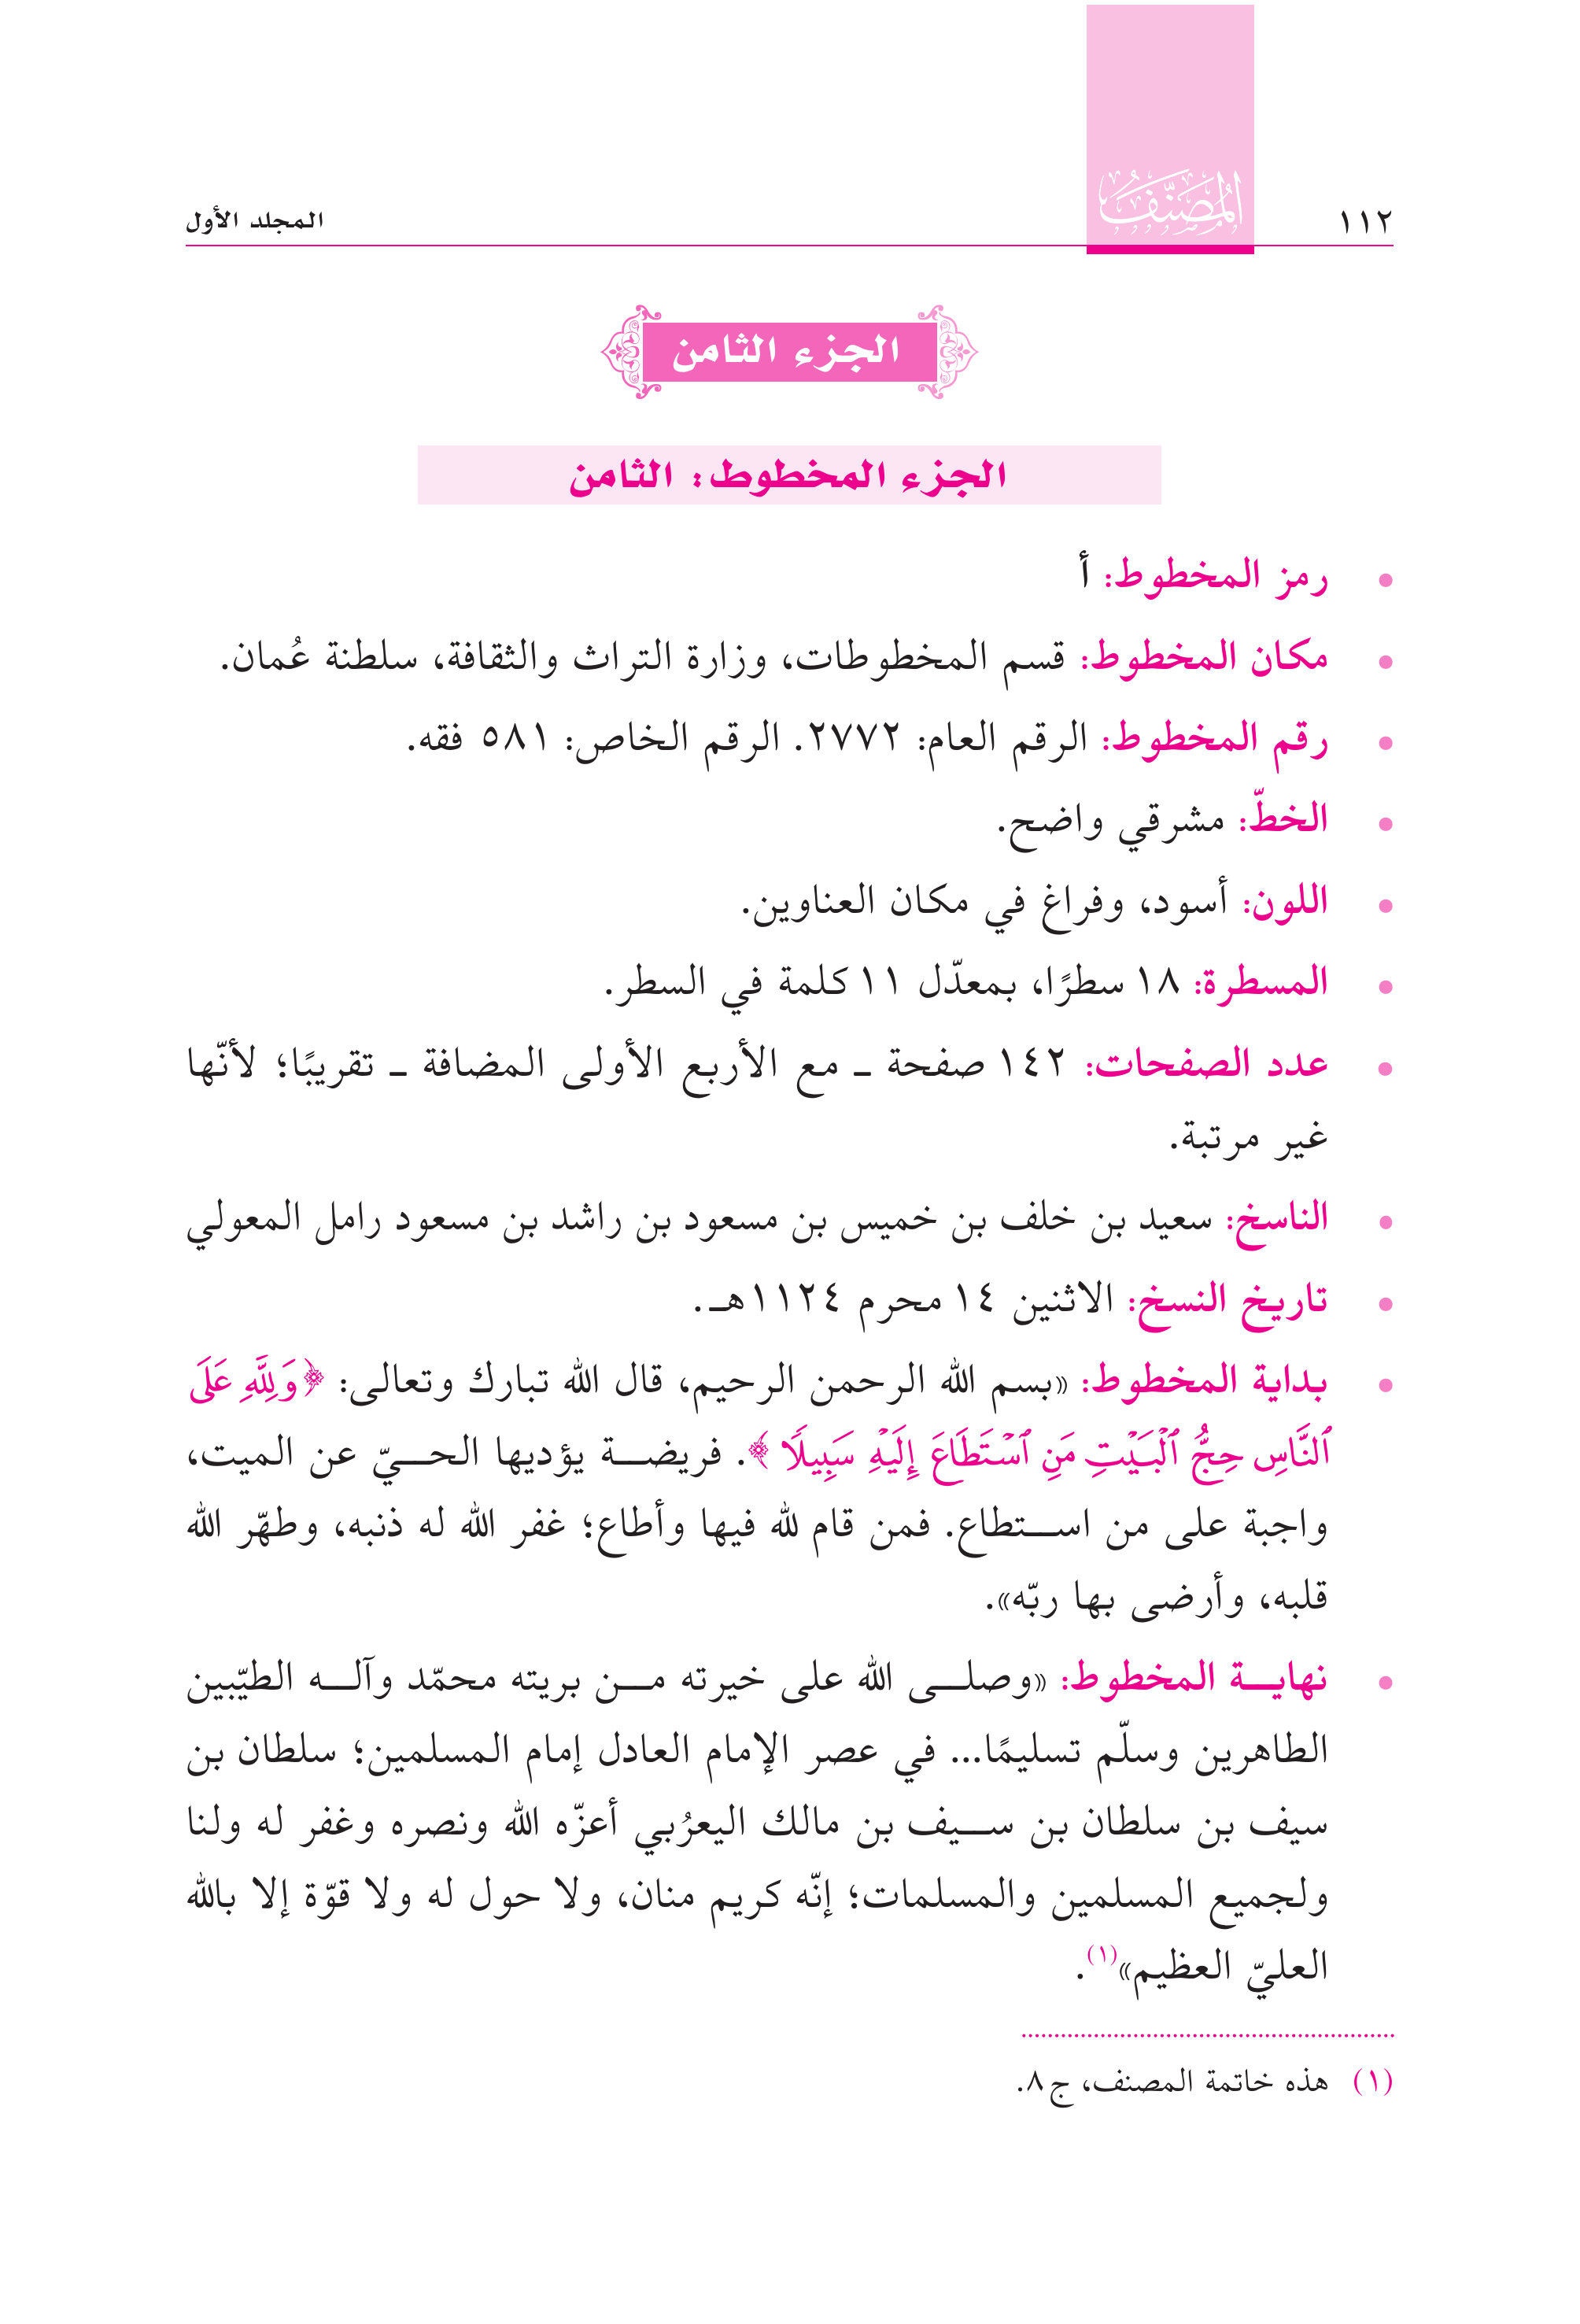 ١١٢
المُصَنَّف
المجلد الأول
الجزء الثامن
الجزء المخطوط: الثامن
• رمز المخطوط: أ
• مكان المخطوط: قسم المخطوطات، وزارة التراث والثقافة، سلطنة عُمان.
• رقم المخطوط: الرقم العام: ٢٧٧٢. الرقم الخاص: ٥٨١ فقه.
• الخطّ: مشرقي واضح.
• اللون: أسود، وفراغ في مكان العناوين.
• المسطرة: ١٨ سطرًا، بمعدّل ١١ كلمة في السطر.
• عدد الصفحات: ١٤٢ صفحة ـ مع الأربع الأولى المضافة ـ تقريبًا؛ لأنّها
غير مرتبة.
• الناسخ: سعيد بن خلف بن خميس بن مسعود بن راشد بن مسعود رامل المعولي
• تاريخ النسخ: الاثنين ١٤ محرم ١١٢٤هـ.
• بداية المخطوط: «بسم الله الرحمن الرحيم، قال الله تبارك وتعالى: ﴿وَلِلَّهِ عَلَى
ٱلنَّاسِ حِجُّ ٱلْبَيْتِ مَنِ ٱسْتَطَاعَ إِلَيْهِ سَبِيلًا﴾. فريضـــة يؤديها الحـــيّ عن الميت،
واجبة على من اســـتطاع. فمن قام لله فيها وأطاع؛ غفر الله له ذنبه، وطهّر الله
قلبه، وأرضى بها ربّه».
• نهايـــة المخطوط: «وصلـــى الله على خيرته مـــن بريته محمّد وآلـــه الطيّبين
الطاهرين وسلّم تسليمًا... في عصر الإمام العادل إمام المسلمين؛ سلطان بن
سيف بن سلطان بن ســـيف بن مالك اليعرُبي أعزّه الله ونصره وغفر له ولنا
ولجميع المسلمين والمسلمات؛ إنّه كريم منان، ولا حول له ولا قوّة إلا بالله
العليّ العظيم»(١).
(١) هذه خاتمة المصنف، ج٨.